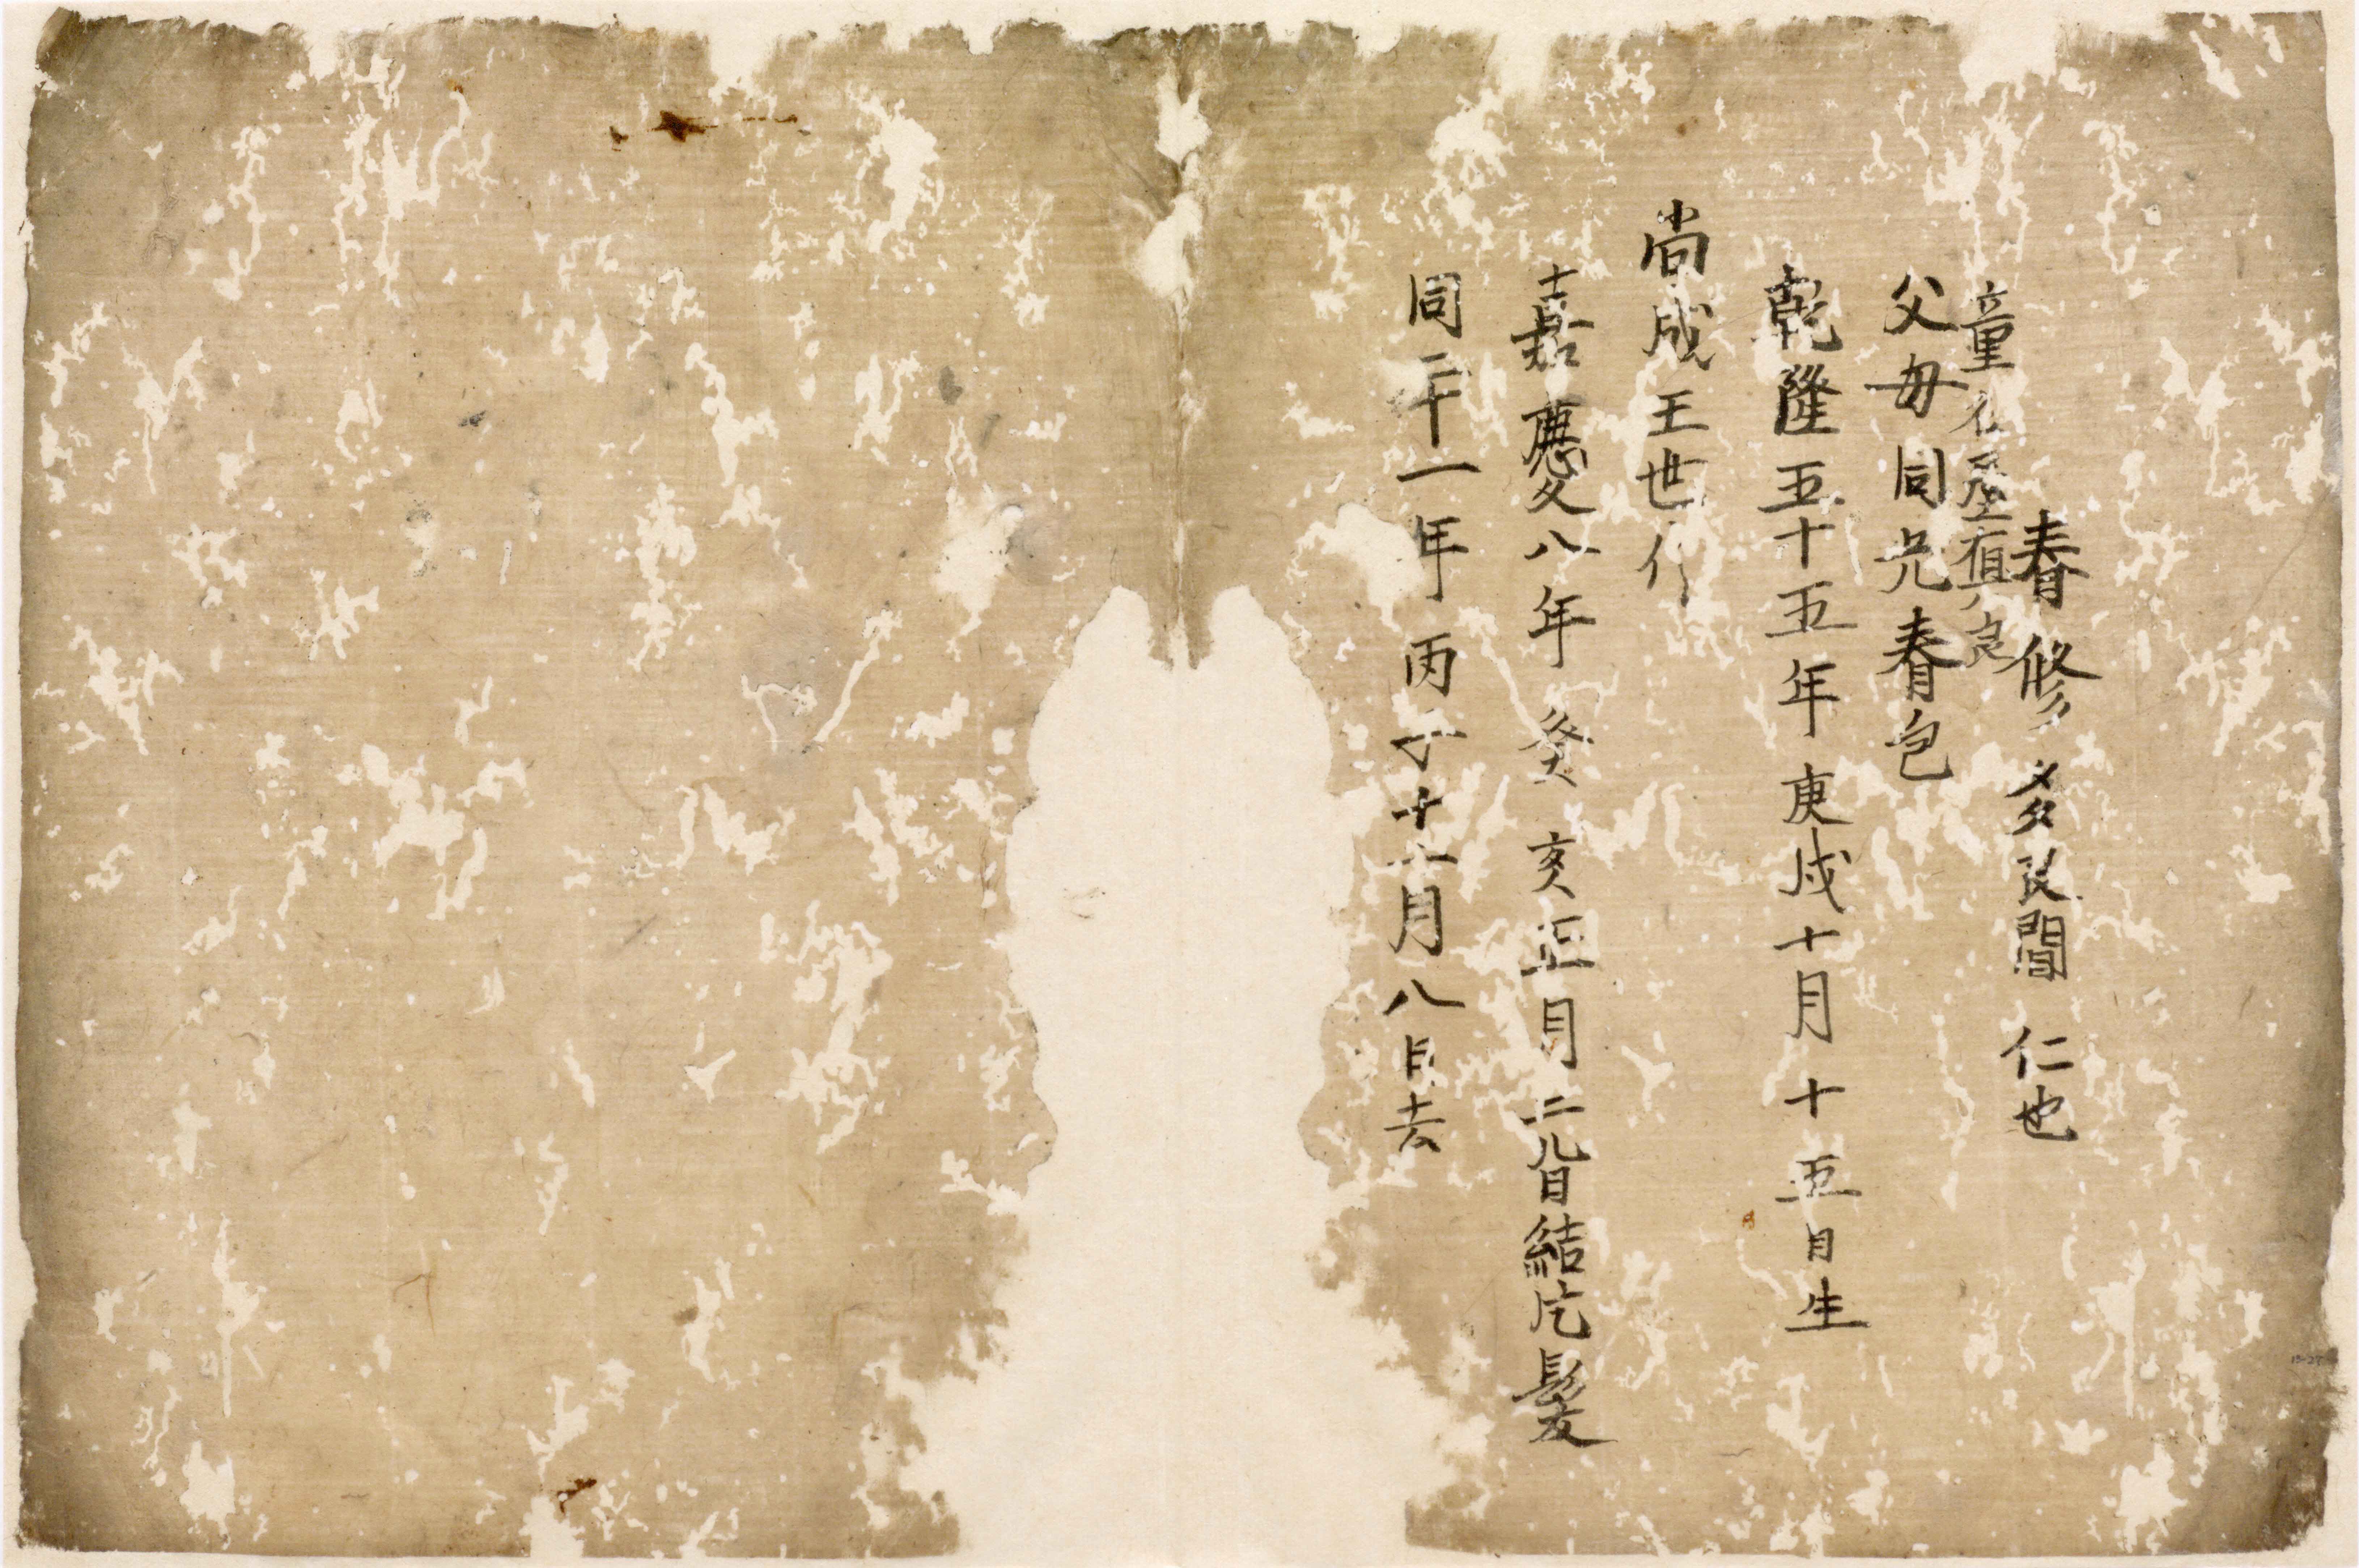 春修 多良間 仁也
童名屋真良
父母同兄春包
乾隆五十五年庚戌十月十五日生
尚成王世代
嘉慶八年癸亥正月二九日結片髮
同二十一年丙子十一月八日去